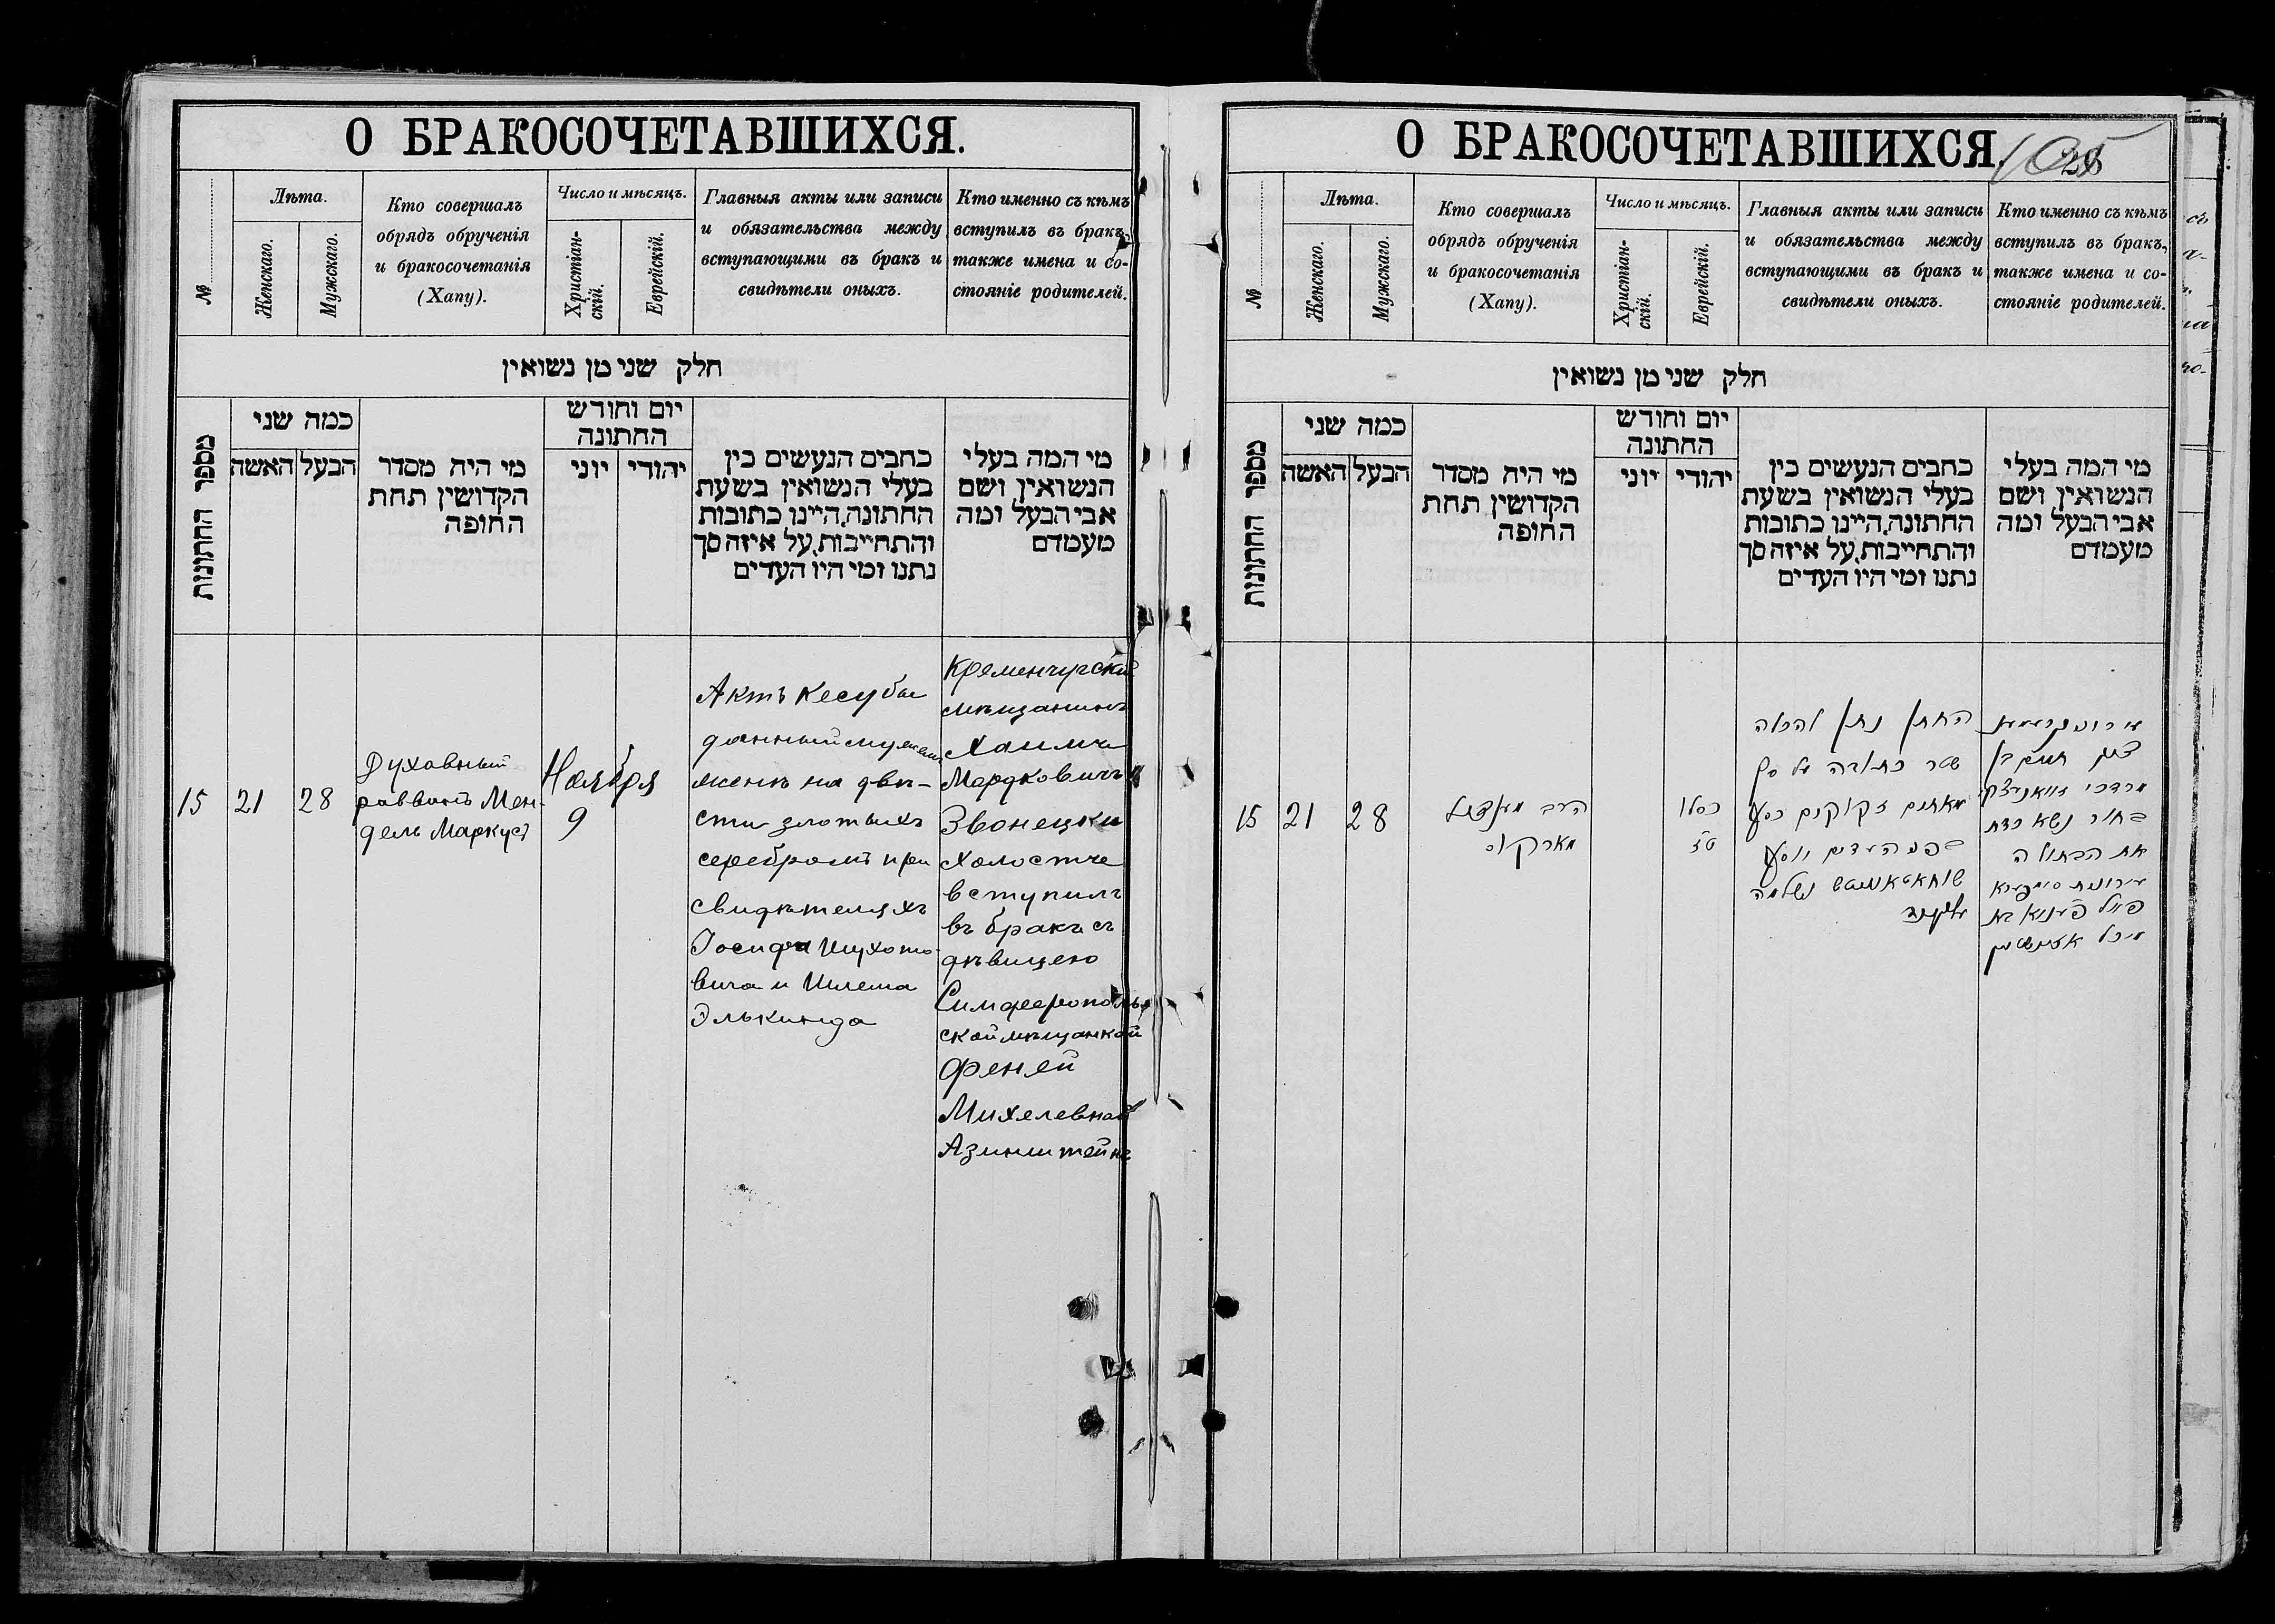 О БРАКОСОЧЕТАВШИХСЯ.
№
Лѣта.
Женскаго.
Мужскаго.
Кто совершалъ
обрядъ обрученія
и бракосочетанія
(Хапу).
Число и мѣсяцъ.
Христіан-
скій.
Еврейскій.
Главныя акты или записи
и обязательства между
вступающими въ бракъ и
свидѣтели оныхъ.
Кто именно съ кѣмъ
вступилъ въ бракъ,
также имена и со-
стояніе родителей.
חלק שני מן נשואין
מספר החתונות
כמה שני
האשה
הבעל
מי היה מסדר
הקדושין תחת
החופה
יום וחודש
החתונה
יוני
יהודי
כתבים הנעשים בין
בעלי הנשואין בשעת
החתונה, היינו כתובות
והתחייבות, על איזה סך
נתנו ומי היו העדים
מי המה בעלי
הנשואין ושם
אבי הבעל ומה
מעמדם
15
21
28
Духовный
раввинъ Мен-
дель Маркусъ
Ноября
9
Актъ Кесубы
данный мужемъ
женѣ на двѣ-
сти злотыхъ
серебромъ при
свидѣтеляхъ
Іосифа Шухато-
вича и Шлема
Элькинда
Кременчугскій
мѣщанинъ
Хаимъ
Мордковичъ
Звонецкій
холостые
вступилъ
въ бракъ съ
дѣвицею
Симферополь-
ской мѣщанкой
Феней
Михелевной
Азинштейнъ
О БРАКОСОЧЕТАВШИХСЯ.
105
№
Лѣта.
Женскаго.
Мужскаго.
Кто совершалъ
обрядъ обрученія
и бракосочетанія
(Хапу).
Число и мѣсяцъ.
Христіан-
скій.
Еврейскій.
Главныя акты или записи
и обязательства между
вступающими въ бракъ и
свидѣтели оныхъ.
Кто именно съ кѣмъ
вступилъ въ бракъ,
также имена и со-
стояніе родителей.
חלק שני מן נשואין
מספר החתונות
כמה שני
האשה
הבעל
מי היה מסדר
הקדושין תחת
החופה
יום וחודש
החתונה
יוני
יהודי
כתבים הנעשים בין
בעלי הנשואין בשעת
החתונה, היינו כתובות
והתחייבות, על איזה סך
נתנו ומי היו העדים
מי המה בעלי
הנשואין ושם
אבי הבעל ומה
מעמדם
15
21
28
הרב מענדיל
מארקוס
כסלו
טז
החתן נתן להכלה
שטר כתובה על סך
מאתים זקוקים כסף
בפני העדים יוסף
ושלמה
עלקינד
חיים בן
מרדכי
בחור נשא כדת
את הבתולה
עירונית
בת
מיכל